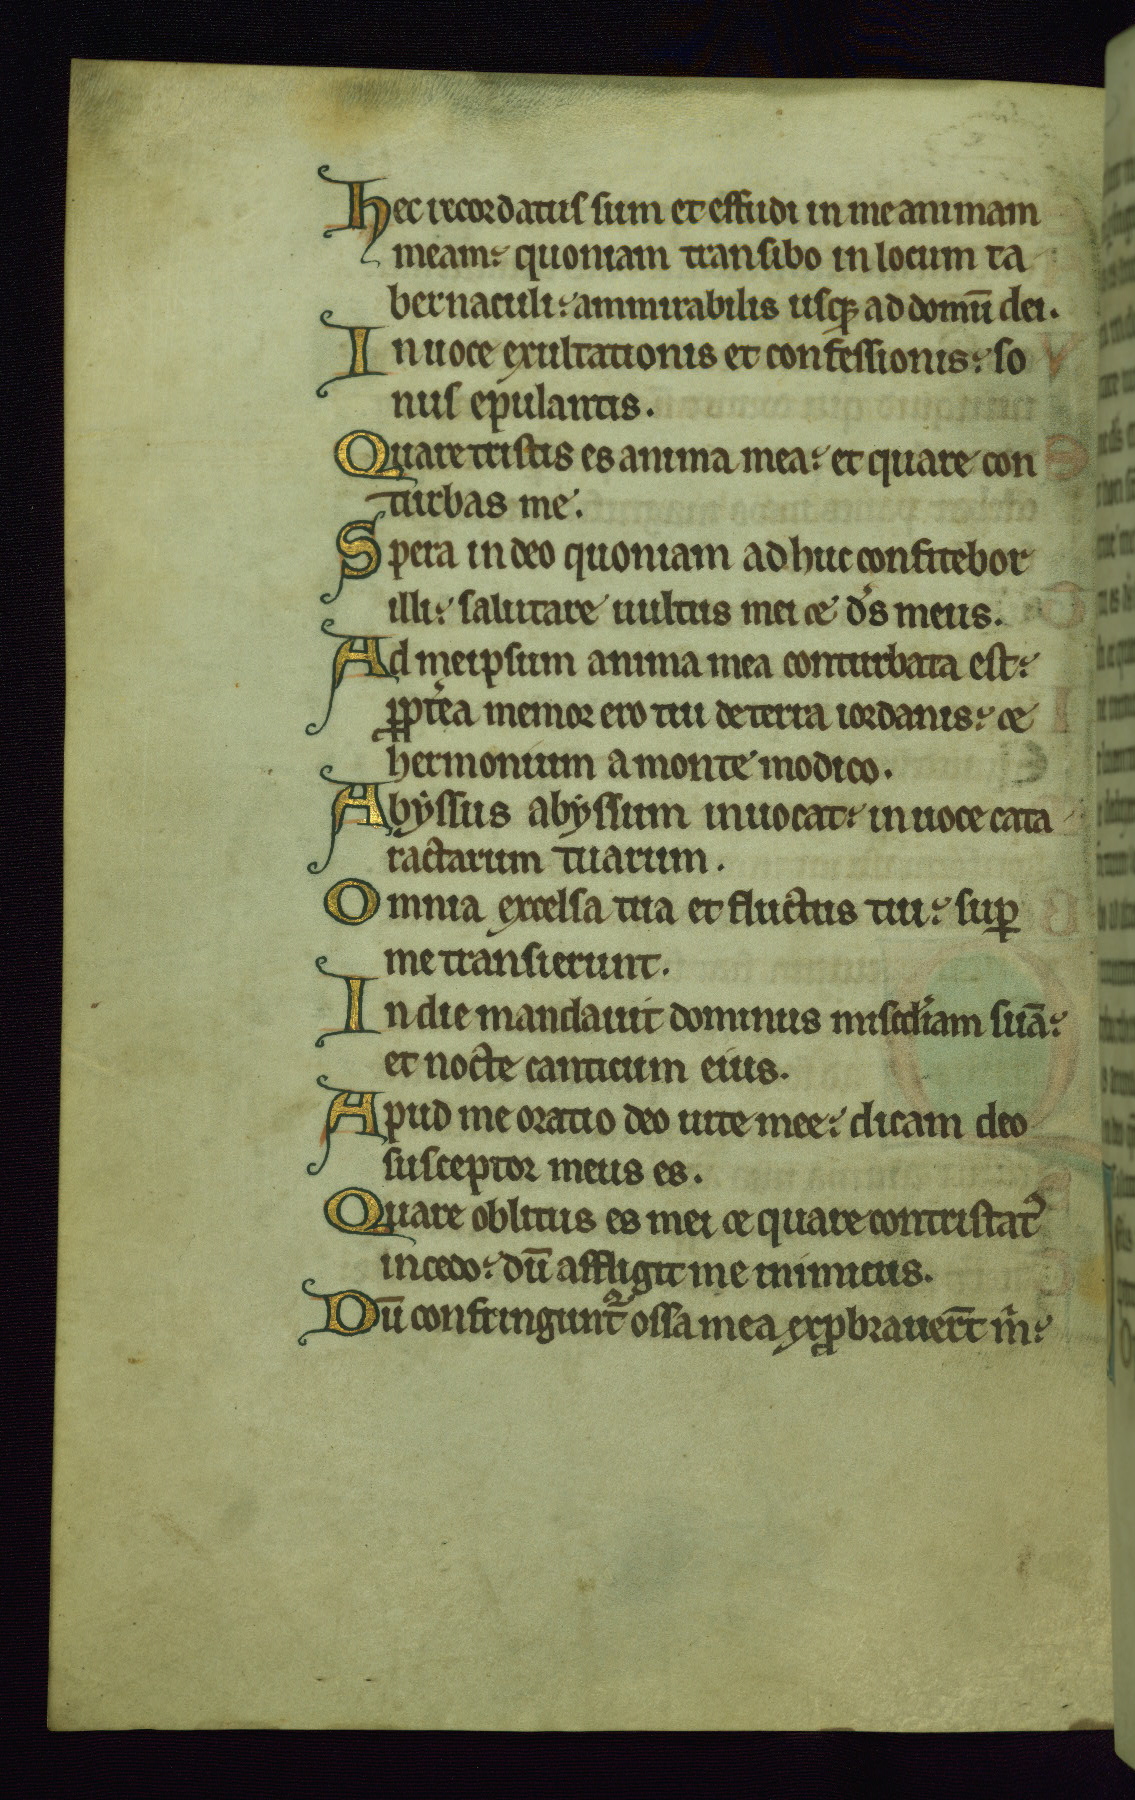 Hec recordatus sum et effudi in me animam
meam: quoniam transibo in locum ta
bernaculi: ammirabilis usq; ad domū dei.
In uoce exultationis et confessionis: so
nus epulantis.
Quare tristis es anima mea: et quare con
turbas me.
Spera in deo quoniam adhuc confitebor
illi: salutare uultus mei et ds meus.
Ad meipsum anima mea conturbata est:
ꝓpterea memor ero tui de terra iordanis: et
hermonium a monte modico.
Abyssus abyssum inuocat: in uoce cata
ractarum tuarum.
Omnia excelsa tua et fluctus tui: suꝑ
me transierunt.
In die mandauit dominus misc̄diam suā:
et nocte canticum eius.
Apud me oratio deo uite mee: dicam deo
susceptor meus es.
Quare oblitus es mei et quare contristat᷑
incedo: dū affligit me inimicus.
Dū confringunt᷑ ossa mea exꝓbrauer̄t m̄: